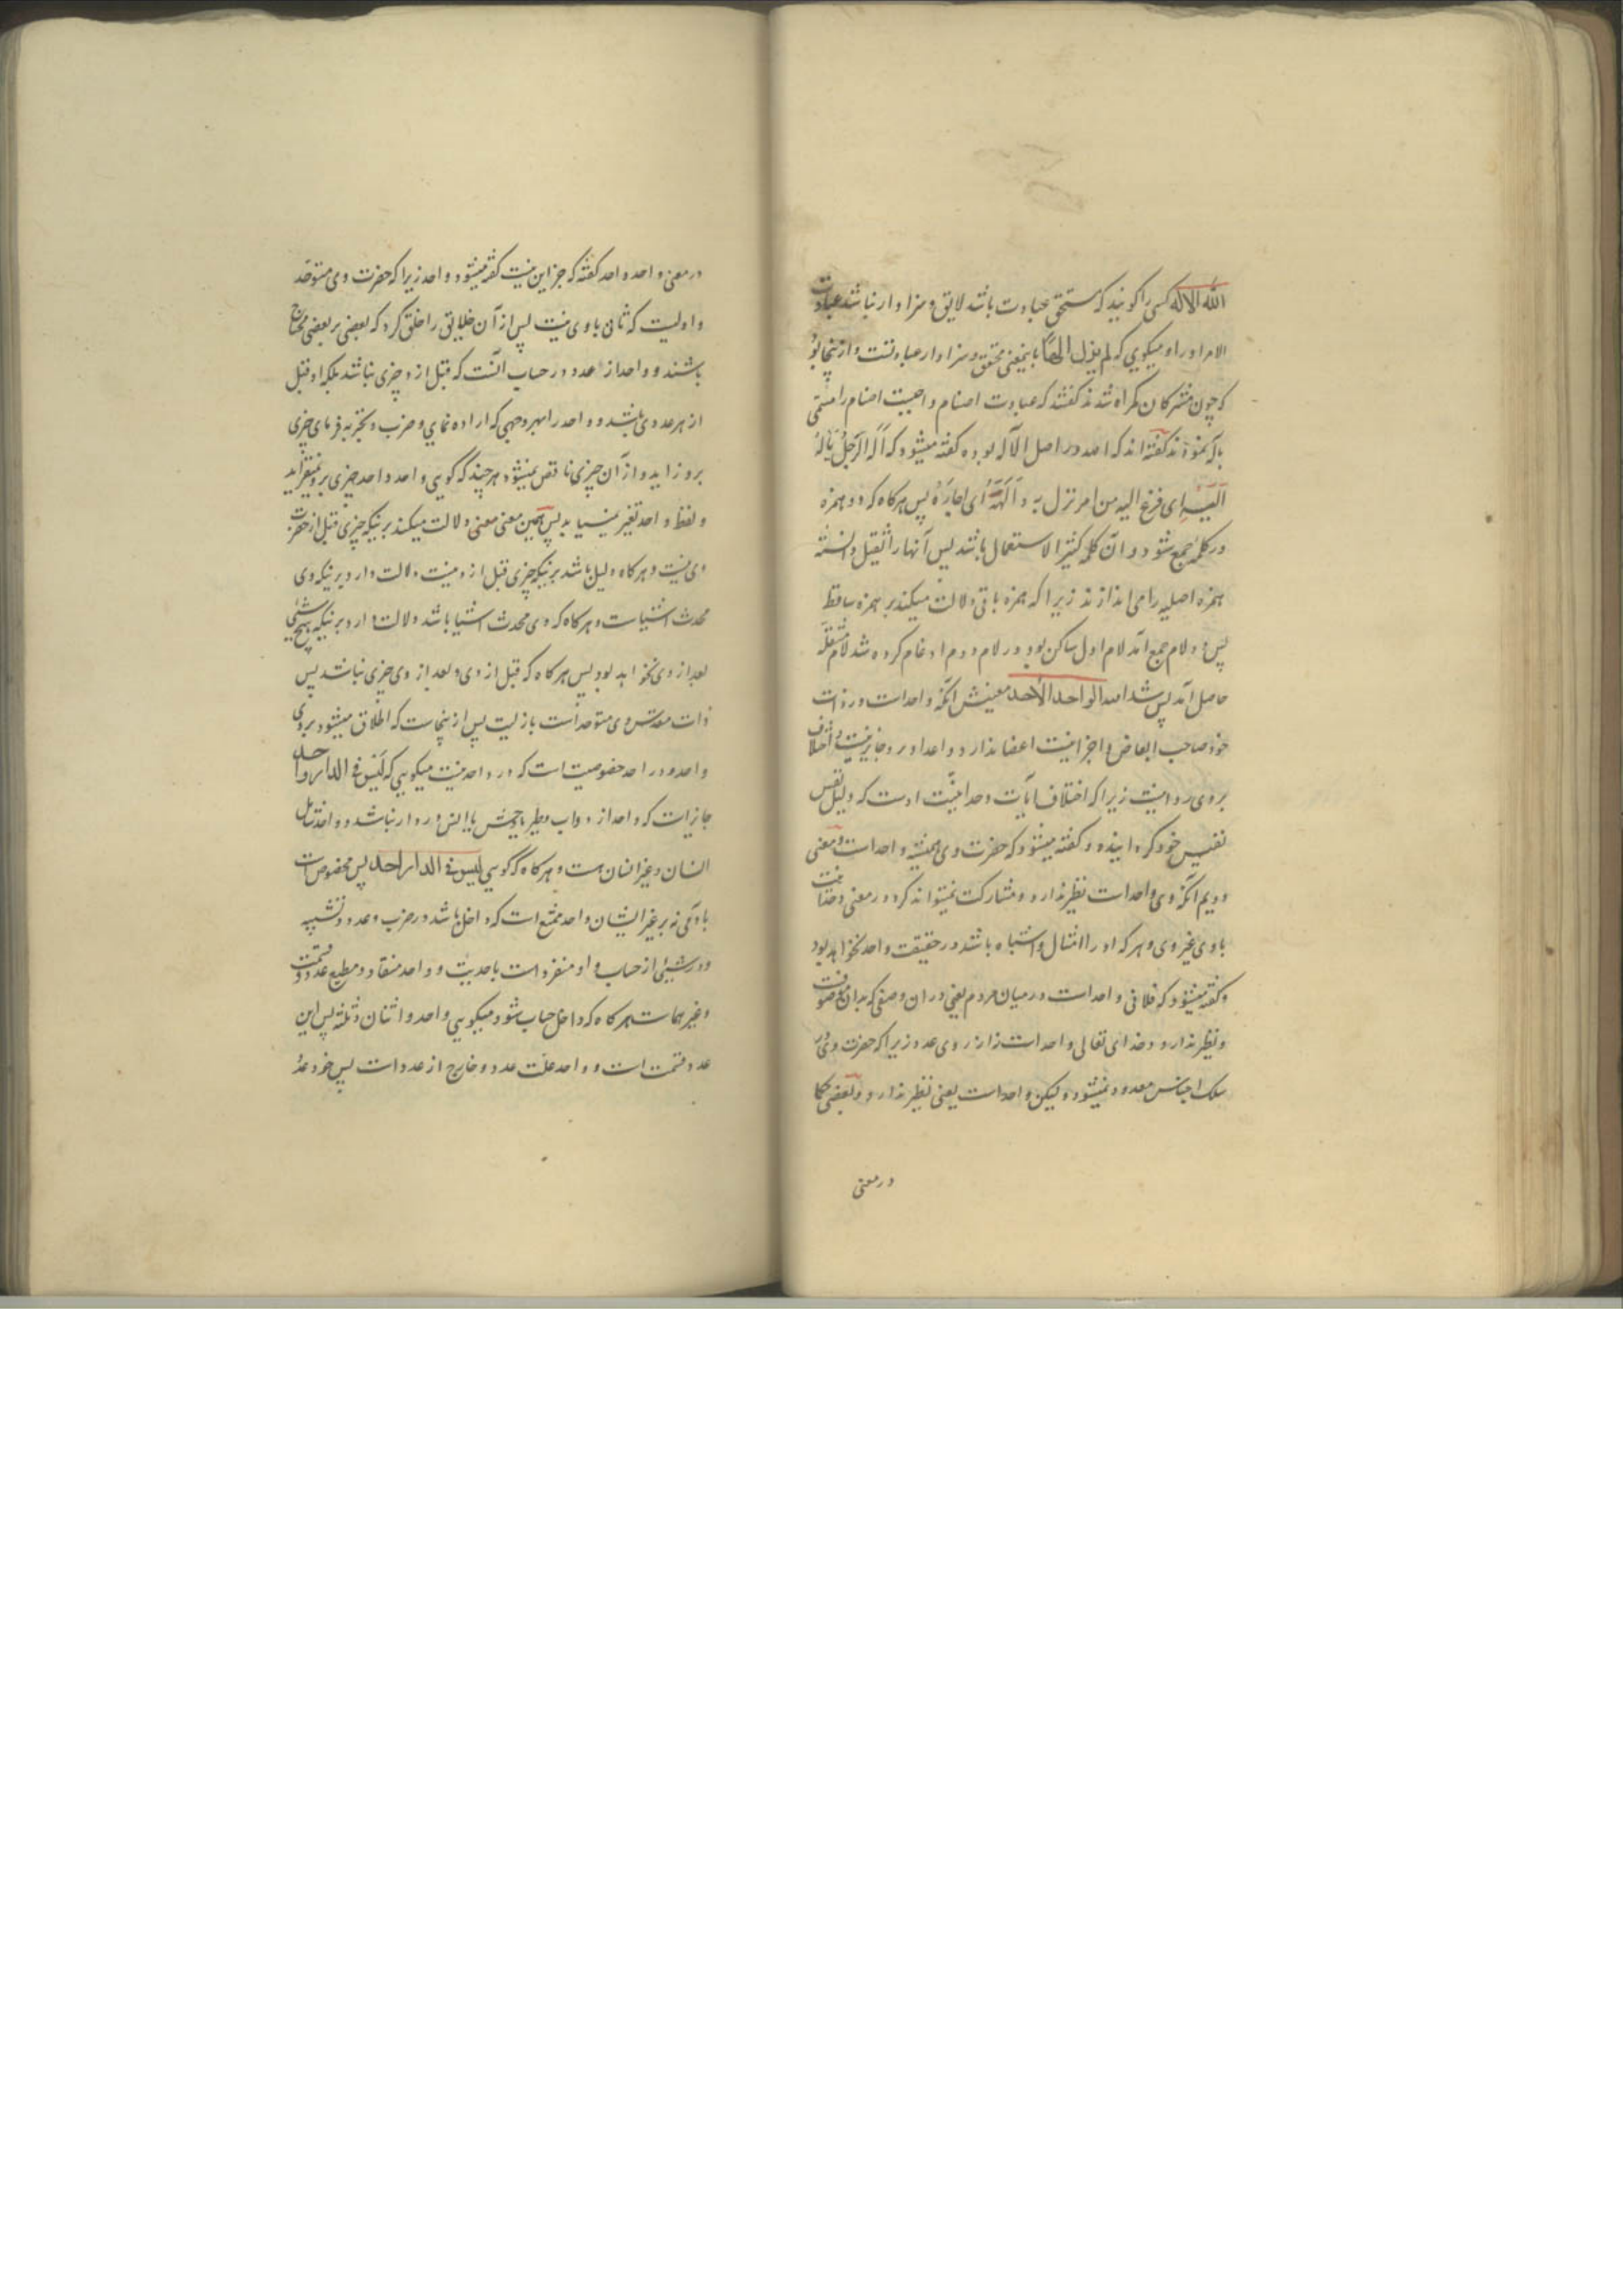 الله الاله کسی را کویند که مستحق عبادت باشد لایق و سزاوار نباشد عبادت
الا مر او را و میکویی که لم یزل الهًا باینمعنی مستحق و سزاوار عبادتست و از ینجا بود
که چون مشرکان کمراه شدند کفتند که عبادت اصنام واجبست اصنام را مسمّی
بآلهه نمودند کفته اند که اصل در اصل الآله بوده کفته میشود که اَلَه الرّجلُ یَالَهُ
اَلَیْهِ ای فزع الیه من امر نزل به و اَلَهَهُ ای اجارَهُ پس هر کاه که دو همزه
در کلمه جمع شود و آن کلمه کثیر الاستعمال باشد پس آنها را ثقیل دانسته
همزه اصلیه را می اندازند زیرا که همزه باقی دلالت میکند بر همزه ساقط
پس دو لام جمع آمد لام اول ساکن بود در لام دوم ادغام کرده شد لام مثقله
حاصل آمد پس شد الله الواحد الأحد معنیش آنکه واحد است در ذات
خود صاحب ابعاض و اجزا نیست اعضا ندارد و اعداد بر وی جایز نیست و اختلاف
بر وی روا نیست زیرا که اختلاف آیات وحدانیّت اوست که دلیل نفس
نفیس خود کردانیده و کفته میشود که حضرت وی همیشه واحد است و معنی
دویم آنکه وی واحد است نظیر ندارد و مشارکت نمیتواند کرد در معنی وحدانیت
با وی غیر وی و هر که او را امثال و اشباه باشد در حقیقت واحد نخواهد بود
و کفته میشود که فلانی واحد است در میان مردم یعنی در ان وصفی که بدان موصوفست
و نظیر ندارد و خدای تعالی واحد است نه از روی عدد زیرا که حضرت وی در
سلک اجناس معدود نمیشود و لیکن واحد است یعنی نظیر ندارد و بعضی حکما
در معنی
در معنی واحد و احد کفته که جز این نیست کفته میشود واحد زیرا که حضرت وی متوحد
و اولیست که ثانی با وی نیست پس از آن خلایق را خلق کرد که بعضی بر بعضی محتاج
باشند و واحد از عدد در حساب آنست که قبل از و چیزی نباشد بلکه او قبل
از هر عددی باشد و واحد را بهر وجهی که اراده نمایی و ضرب و تجزیه فرمای چیزی
برو زاید و از آن چیزی ناقص نمیشود هر چند که کویی واحد و احد چیزی برو نمیفزاید
و لفظ واحد تغیر نمییابد پس همین معنی معنی دلالت میکند برینکه چیزی قبل از حضرت
وی نیست و هر کاه دلیل باشد برینکه چیزی قبل از و نیست دلالت دارد برینکه وی
محدث اشیاست و هر کاه که وی محدث اشیا باشد دلالت دارد برینکه هیچ شیئی
بعد از وی نخواهد بود پس هر کاه که قبل از وی و بعد از وی چیزی نباشد پس
ذات مقدس وی متوحد است بازلیت پس از ینجاست که اطلاق میشود بر وی
واحد و در احد خصوصیت است که در واحد نیست میکویی که لَیْسَ فی الدار واحد
جایز است که واحد از دواب و طیر یا وحش یا انس در دار نباشد و واحد شامل
انسان و غیر انسان هست و هر کاه که کویی لیس فی الدار احد پس مخصوص است
بآدمی نه بر غیر ایشان واحد ممتنع است که داخل باشد در ضرب و عدد و تشبیه
و در شیئی از حساب و او منفرد است باحدیت و واحد منقاد و مطیع عدد و قسمت
و غیر هماست هر کاه که داخل حساب شود میکویی واحد و اثنان و ثلثه پس این
عدد قسمت است و واحد علت عدد و خارج از عدد است پس خود عدد